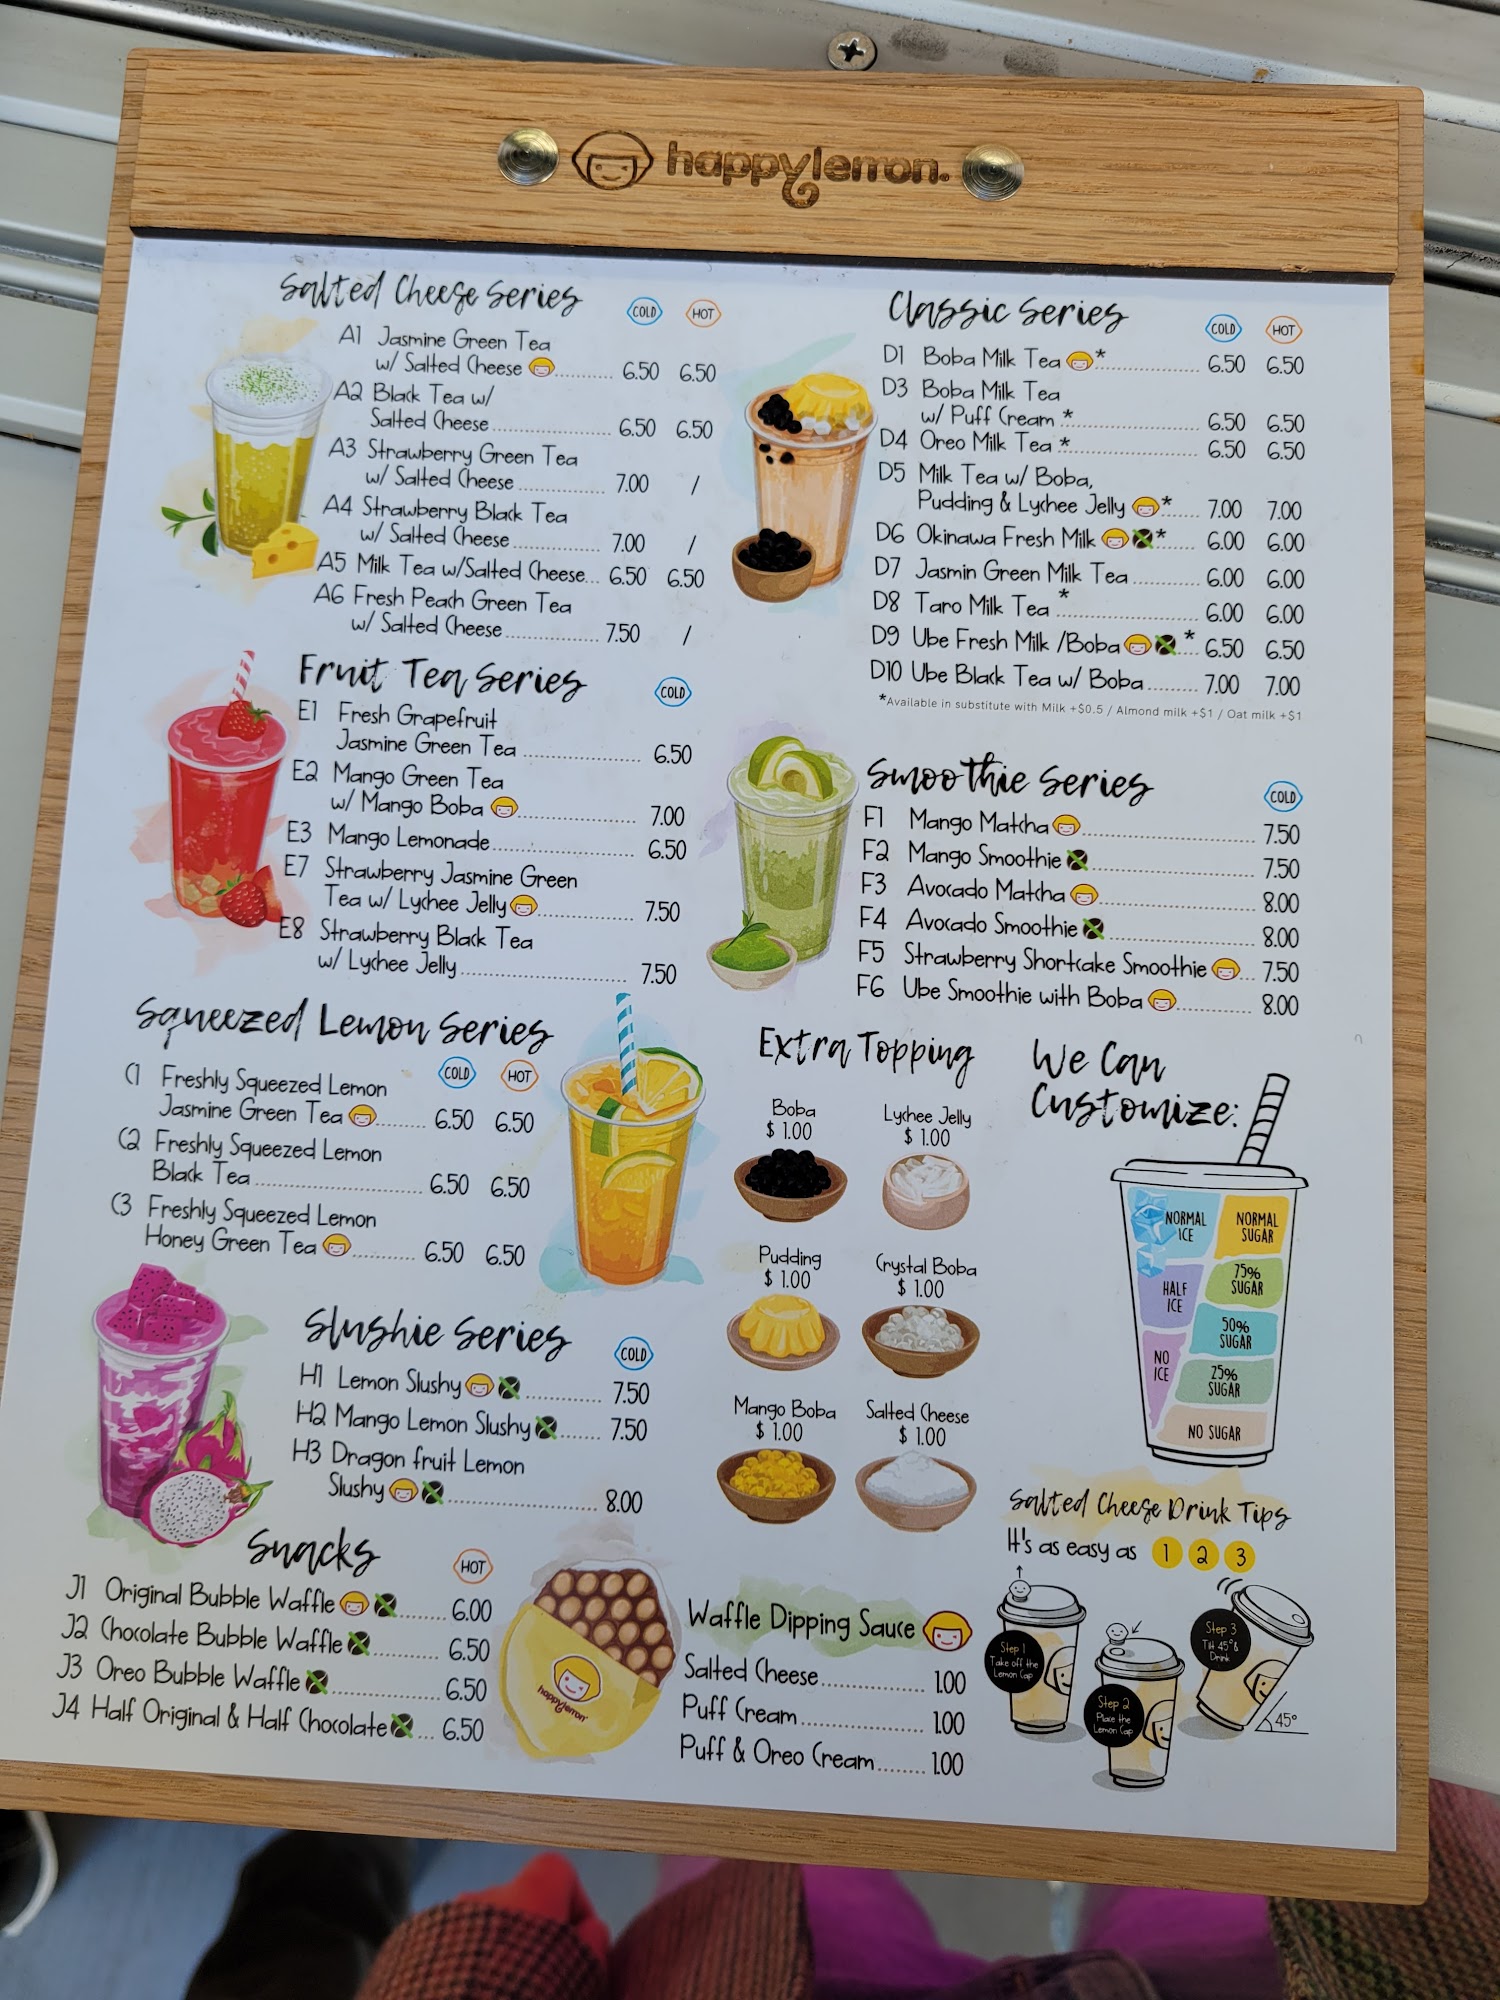 happylemon.
Salted Cheese Series
COLD HOT
A1 Jasmine Green Tea
w/ Salted Cheese ............ 6.50 6.50
A2 Black Tea w/
Salted Cheese ............ 6.50 6.50
A3 Strawberry Green Tea
w/ Salted Cheese ............ 7.00 /
A4 Strawberry Black Tea
w/ Salted Cheese ............ 7.00 /
A5 Milk Tea w/Salted Cheese... 6.50 6.50
A6 Fresh Peach Green Tea
w/ Salted Cheese ............ 7.50 /
Fruit Tea Series
COLD
E1 Fresh Grapefruit
Jasmine Green Tea ............ 6.50
E2 Mango Green Tea
w/ Mango Boba ............ 7.00
E3 Mango Lemonade ............ 6.50
E7 Strawberry Jasmine Green
Tea w/ Lychee Jelly ............ 7.50
E8 Strawberry Black Tea
w/ Lychee Jelly ............ 7.50
Squeezed Lemon Series
COLD HOT
C1 Freshly Squeezed Lemon
Jasmine Green Tea ............ 6.50 6.50
C2 Freshly Squeezed Lemon
Black Tea ............ 6.50 6.50
C3 Freshly Squeezed Lemon
Honey Green Tea ............ 6.50 6.50
Slushie Series
COLD
H1 Lemon Slushy ............ 7.50
H2 Mango Lemon Slushy ...... 7.50
H3 Dragon fruit Lemon
Slushy ............ 8.00
Snacks
HOT
J1 Original Bubble Waffle ....... 6.00
J2 Chocolate Bubble Waffle ............ 6.50
J3 Oreo Bubble Waffle ............ 6.50
J4 Half Original & Half Chocolate ... 6.50
happylemon
Classic Series
COLD HOT
D1 Boba Milk Tea * ............ 6.50 6.50
D3 Boba Milk Tea
w/ Puff Cream * ............ 6.50 6.50
D4 Oreo Milk Tea * ............ 6.50 6.50
D5 Milk Tea w/ Boba,
Pudding & Lychee Jelly * ...... 7.00 7.00
D6 Okinawa Fresh Milk * ...... 6.00 6.00
D7 Jasmin Green Milk Tea ............ 6.00 6.00
D8 Taro Milk Tea * ............ 6.00 6.00
D9 Ube Fresh Milk /Boba * ... 6.50 6.50
D10 Ube Black Tea w/ Boba ........ 7.00 7.00
*Available in substitute with Milk +$0.5 / Almond milk +$1 / Oat milk +$1
Smoothie Series
COLD
F1 Mango Matcha ............ 7.50
F2 Mango Smoothie ............ 7.50
F3 Avocado Matcha ............ 8.00
F4 Avocado Smoothie ............ 8.00
F5 Strawberry Shortcake Smoothie ... 7.50
F6 Ube Smoothie with Boba ............ 8.00
Extra Topping
Boba
$ 1.00
Lychee Jelly
$ 1.00
Pudding
$ 1.00
Crystal Boba
$ 1.00
Mango Boba
$ 1.00
Salted Cheese
$ 1.00
We Can
Customize:
NORMAL
ICE
HALF
ICE
NO
ICE
NORMAL
SUGAR
75%
SUGAR
50%
SUGAR
25%
SUGAR
NO SUGAR
Waffle Dipping Sauce
Salted Cheese ............ 1.00
Puff Cream ............ 1.00
Puff & Oreo Cream ........ 1.00
Salted Cheese Drink Tips
It's as easy as 1 2 3
Step 1
Take off the
Lemon Cap
Step 2
Place the
Lemon Cap
Step 3
Tilt 45° &
Drink
45°